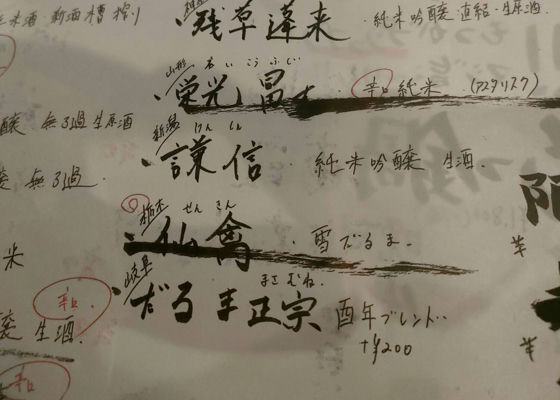 残草蓬莱 ・純米吟醸 直結・生原酒
山形 えいこうふじ
・栄光冨士 辛口純米 (アスタリスク)
無ろ過生原酒
新潟 けんしん
・謙信 ・純米吟醸 生酒.
無ろ過.
栃木 せんきん
・仙禽 ・雪だるま.
米
岐阜 まさむね.
・だるま正宗 酉年ブレンド..
+¥200
辛口.
生酒.
辛口